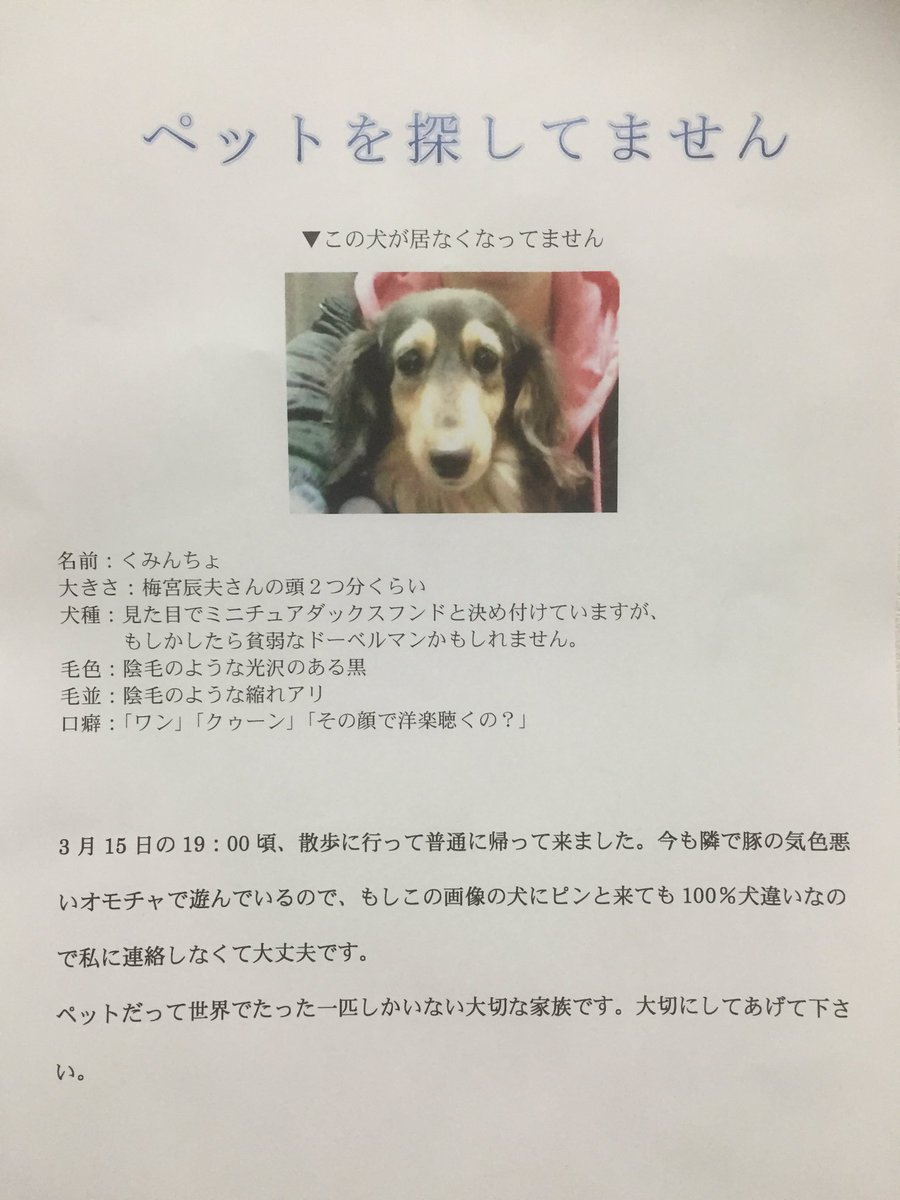 ペットを探してません
▼この犬が居なくなってません
名前：くみんちょ
大きさ：梅宮辰夫さんの頭２つ分くらい
犬種：見た目でミニチュアダックスフンドと決め付けていますが、
もしかしたら貧弱なドーベルマンかもしれません。
毛色：陰毛のような光沢のある黒
毛並：陰毛のような縮れアリ
口癖：「ワン」「クゥーン」「その顔で洋楽聴くの？」
3月15日の19：00頃、散歩に行って普通に帰って来ました。今も隣で豚の気色悪
いオモチャで遊んでいるので、もしこの画像の犬にピンと来ても100％犬違いなの
で私に連絡しなくて大丈夫です。
ペットだって世界でたった一匹しかいない大切な家族です。大切にしてあげて下さ
い。